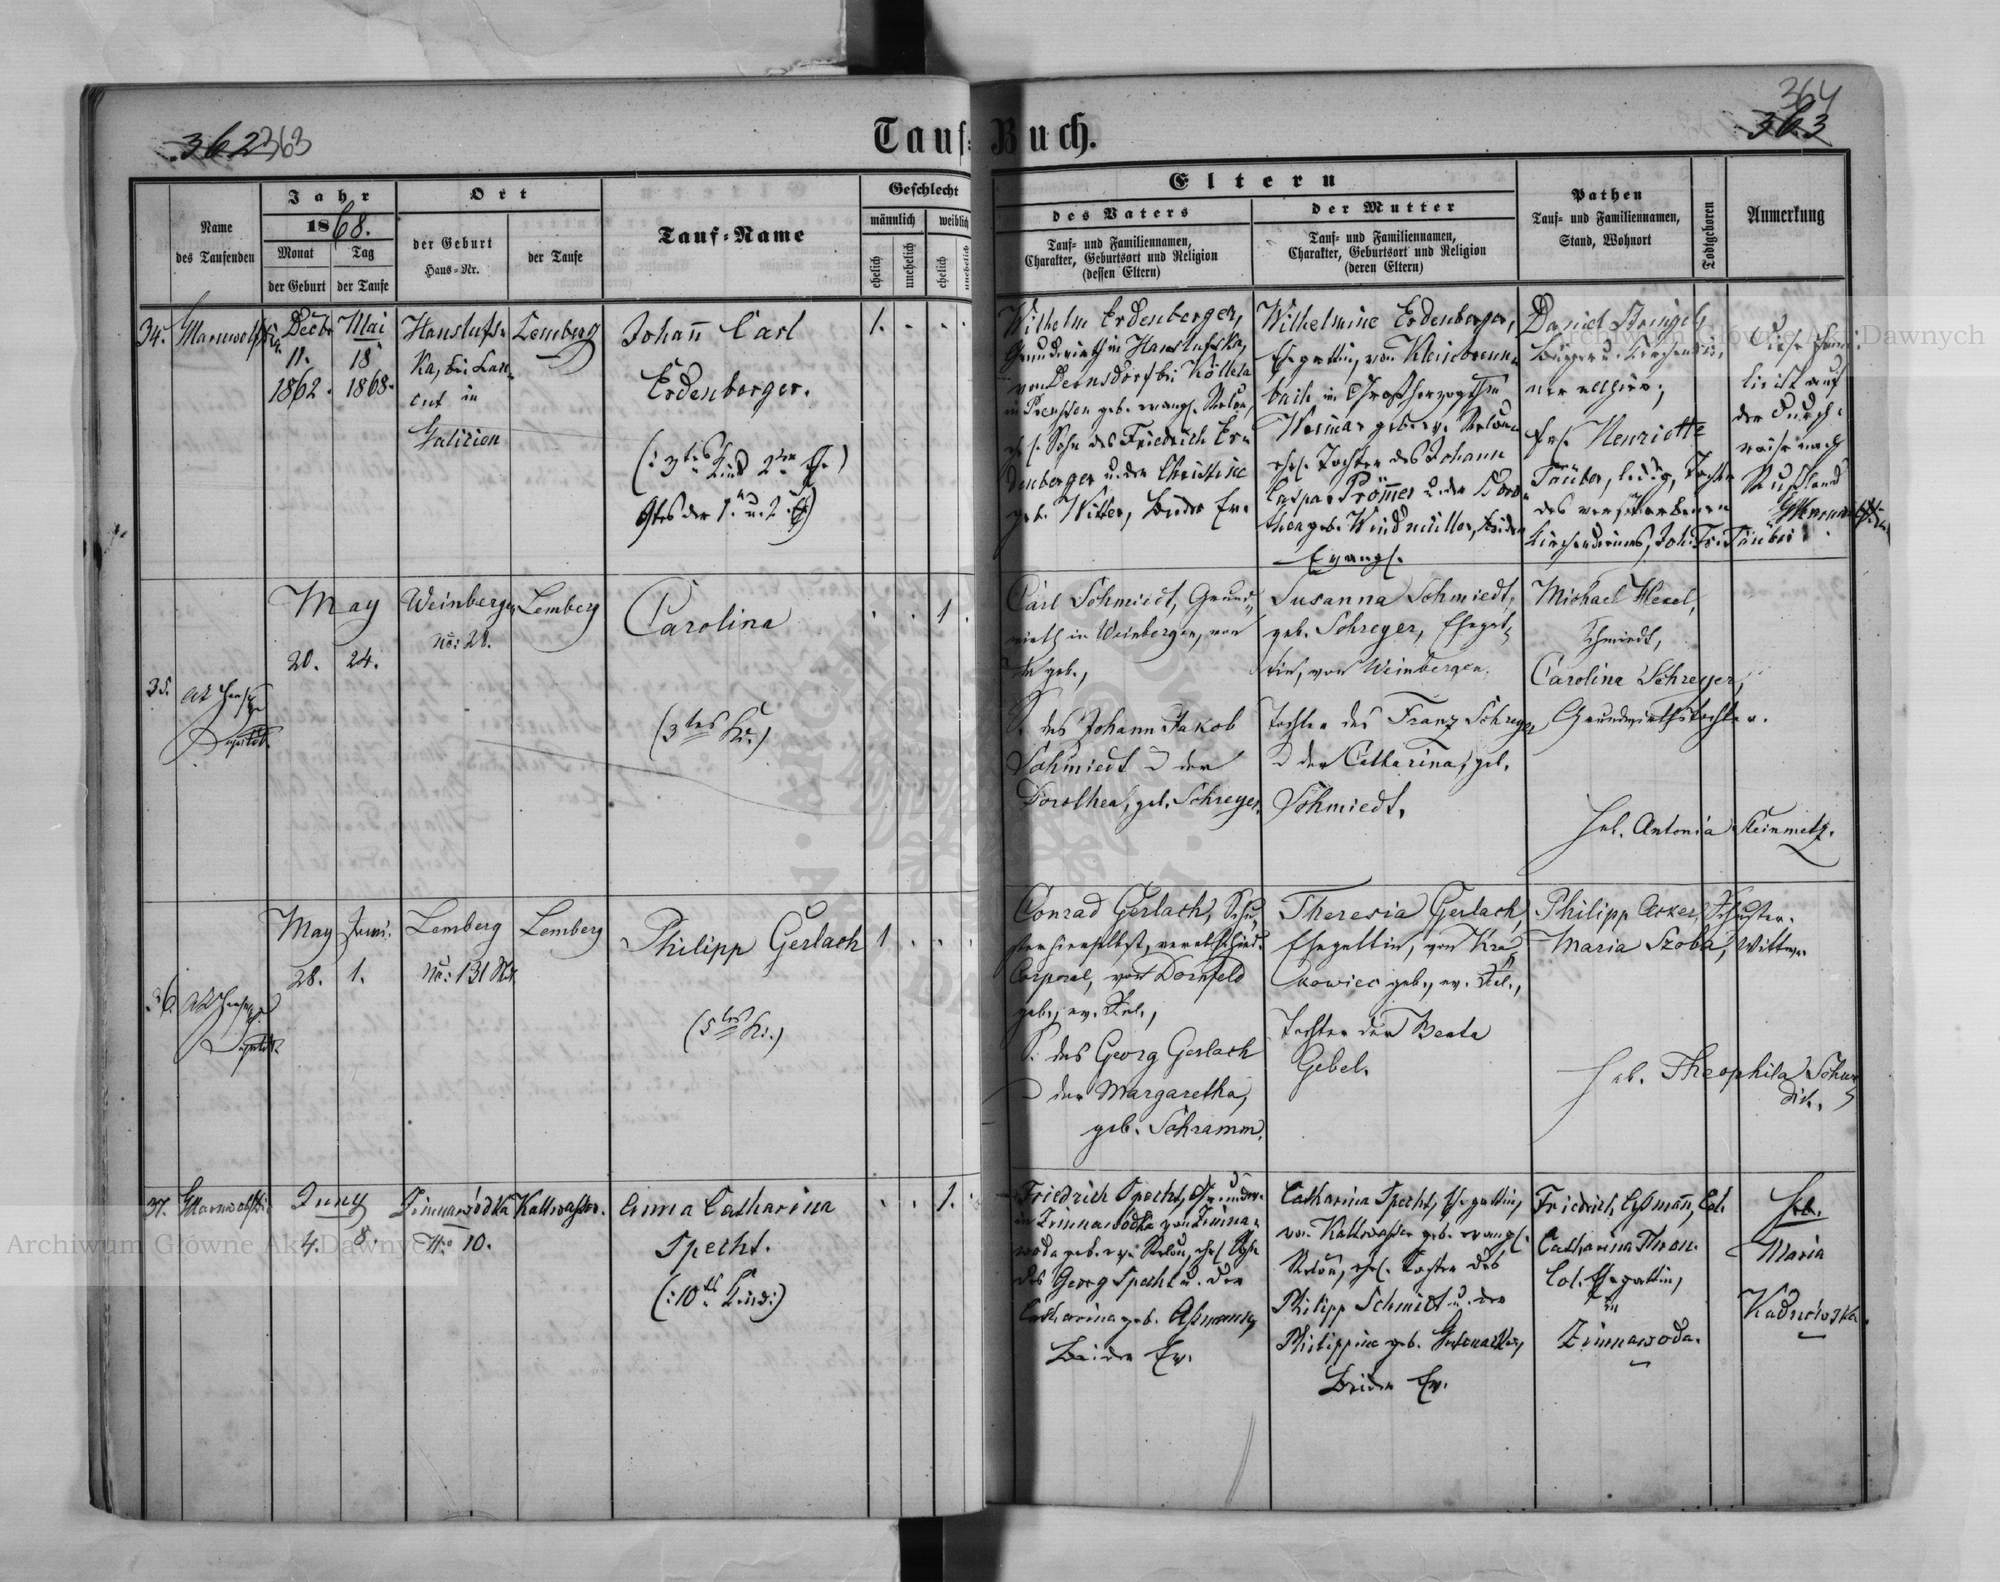 362 363
364
363
Tauf-Buch.
Name
des Taufenden
Jahr
1868.
Monat
der Geburt
Tag
der Taufe
Ort
der Geburt
Haus-Nr.
der Taufe
Tauf-Name
Geschlecht
männlich
weiblich
ehelich
unehelich
ehelich
unehelich
Eltern
des Vaters
Tauf- und Familiennamen,
Charakter, Geburtsort und Religion
(dessen Eltern)
der Mutter
Tauf- und Familiennamen,
Charakter, Geburtsort und Religion
(deren Eltern)
Pathen
Tauf- und Familiennamen,
Stand, Wohnort
Todtgeboren
Anmerkung
34.
Decbr
11.
1862.
Mai
18
1868.
ka, bei
in
Galizien
Lemberg
Johann Carl
Erdenberger.
(: 3tes Kind 2ter Ehe)
1.
Wilhelm Erdenberger,
Grundwirth in
von Dernsdorf bei Kölleda
in Preussen geb. evang. Relion,
ehl. Sohn des Friedrich Er-
denberger u. der Christine
geb. Witter, Beide Ev.
Wilhelmine Erdenberger,
Ehegattin, von Kleinbrem-
bach im Großherzogthum
Weimar geb. ev. Relion
ehel. Tochter des Johann
Caspar Prömmer u. der Doro-
thea geb. Windmüller, beide
Evangl.
Daniel
Bürger u. Kirchendie-
ner allhier;
Frl. Henriette
Täuber, ledig, Tochter
des verstorbenen
Kirchendieners, Joh. Fr. Täuber
Diese Fami-
lie ist auf
der Durch-
reise nach
Rußland
35.
May
20.
24.
Weinbergen
No: 28.
Lemberg
Carolina
(3tes Ki.)
1
Carl Schmiedt, Grund-
wirth in Weinbergen, von
geb.,
S. des Johann Jakob
Schmiedt u der
Dorothea, geb. Schreyer.
Susanna Schmiedt,
geb. Schreyer, Ehegat-
tin, von Weinbergen,
Tochter des Franz Schreyer
u der Catharina, geb.
Schmiedt.
Michael Hexel,
Schmiedt,
Carolina Schreyer,
Grundwirthstochter.
Heb. Antonia Steinmetz.
36.
May
28.
Juni.
1.
Lemberg
No: 131
Lemberg
Philipp Gerlach
(5tes Ki.)
1
Conrad Gerlach, Schu-
ster hierselbst, verabschied.
Corporal, von Dornfeld
geb., ev. Rel.,
S. des Georg Gerlach
u der Margaretha,
geb. Schramm.
Theresia Gerlach,
Ehegattin, von Kra-
kowiec geb., ev. Rel.,
Tochter der Beata
Gebel.
Philipp Acker, Schuster.
Maria Szoba, Wittwe
Heb. Theophila
37.
Juny
4.
8.
Zimnawódka
No 10.
Kaltwasser.
Anna Catharina
Specht.
(: 10tes Kind :)
1.
Friedrich Specht, Grundw.
in Zimnawodka von Zimna-
woda geb. ev. Relion, ehel. Sohn
des Georg Specht u. der
Catharina geb. Aßmann,
Beide Ev.
Catharina Specht, Ehegattin,
von Kaltwasser geb. evangl.
Relion, ehel. Tochter des
Philipp Schmidt u. der
Philippine geb.
Beide Ev.
Friedrich Eßmann, Col.
Catharina Thron
Col. Ehegattin,
in
Zimnawoda.
Heb.
Maria
Archiwum Główne Akt Dawnych
Archiwum Główne Akt Dawnych